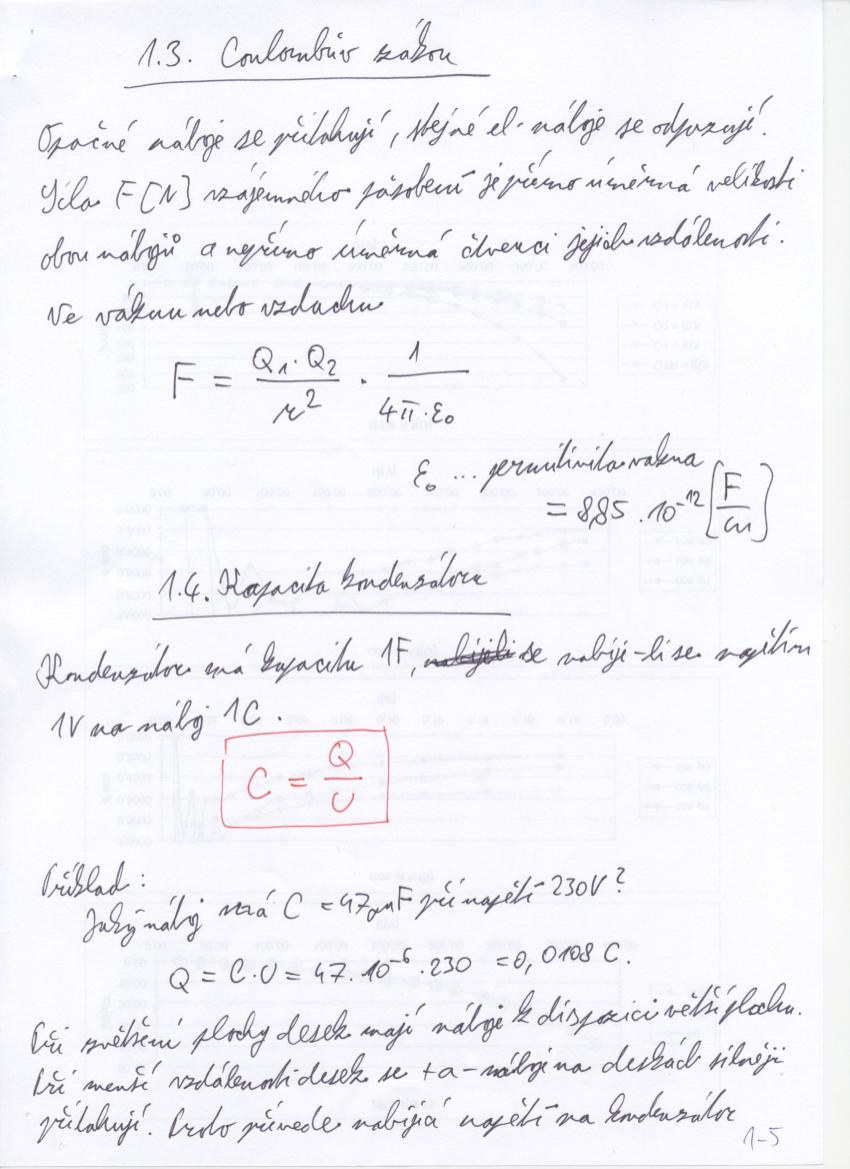 1.3. Coulombův zákon
Opačné náboje se přitahují, stejné el. náboje se odpuzují.
Síla F[N] vzájemného působení je přímo úměrná velikosti
obou nábojů a nepřímo úměrná čtverci jejich vzdálenosti.
Ve vákuu nebo vzduchu
F = Q1·Q2 / r² · 1 / 4π·ε0
ε0 ... permitivita vakua
= 8,85 . 10⁻¹² [F/m]
1.4. Kapacita kondenzátoru
Kondenzátor má kapacitu 1F, se nabíjí-li se napětím
1V na náboj 1C.
C = Q / U
Příklad:
Jaký náboj má C = 47μF při napětí 230V?
Q = C.U = 47. 10⁻⁶ .230 = 0,0108 C.
Při zvětšení plochy desek mají náboje k dispozici větší plochu.
Při menší vzdálenosti desek se + a - náboje na deskách silněji
přitahují. Proto přivede nabíjecí napětí na kondenzátor
1-5